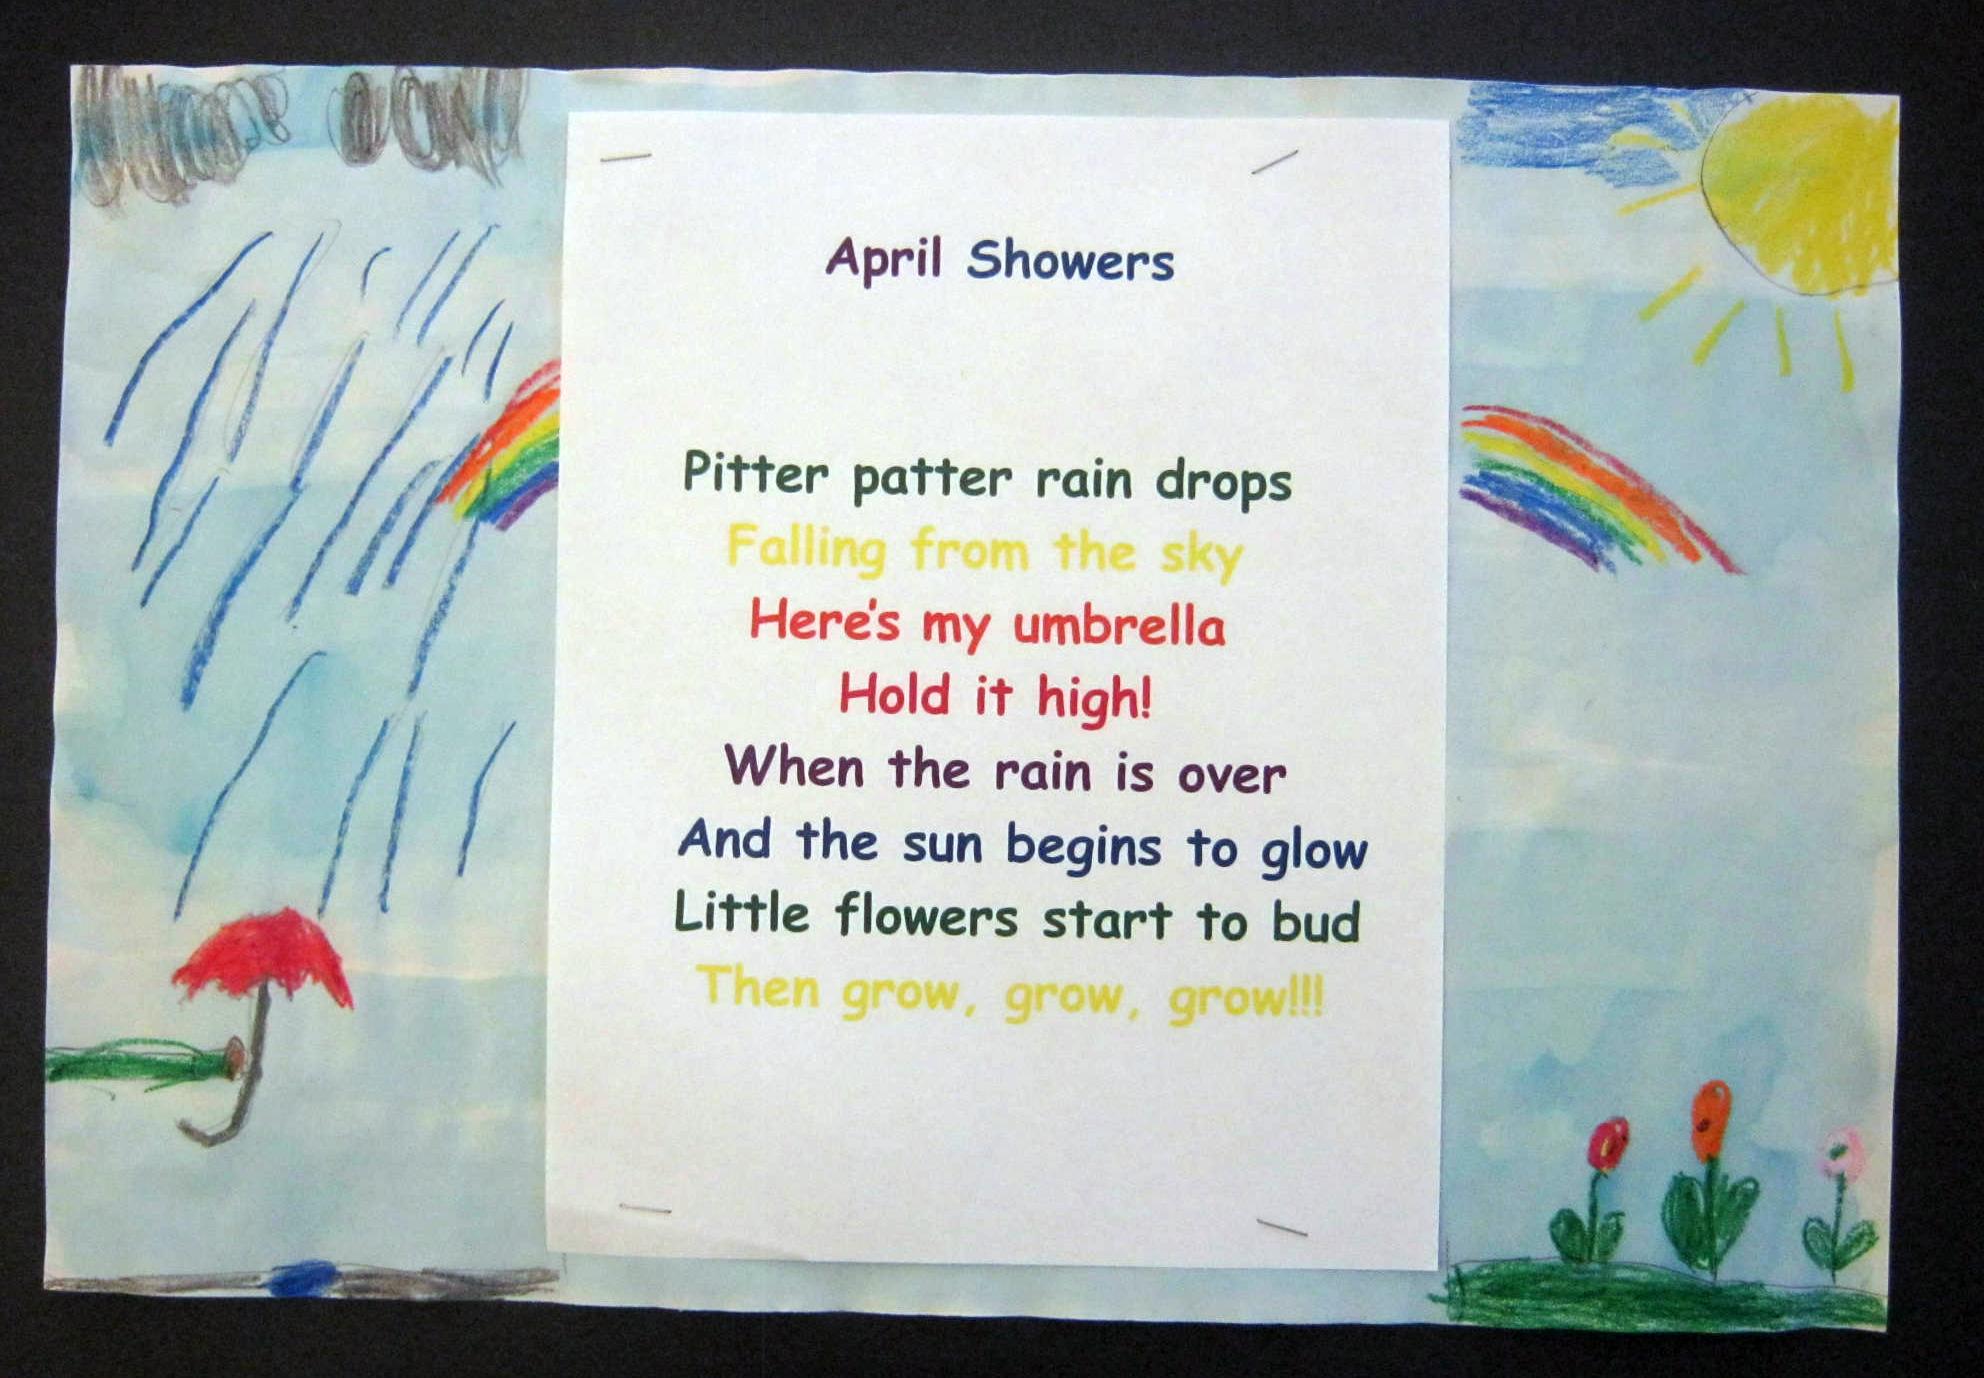 April Showers
Pitter patter rain drops
Falling from the sky
Here's my umbrella
Hold it high!
When the rain is over
And the sun begins to glow
Little flowers start to bud
Then grow, grow, grow!!!